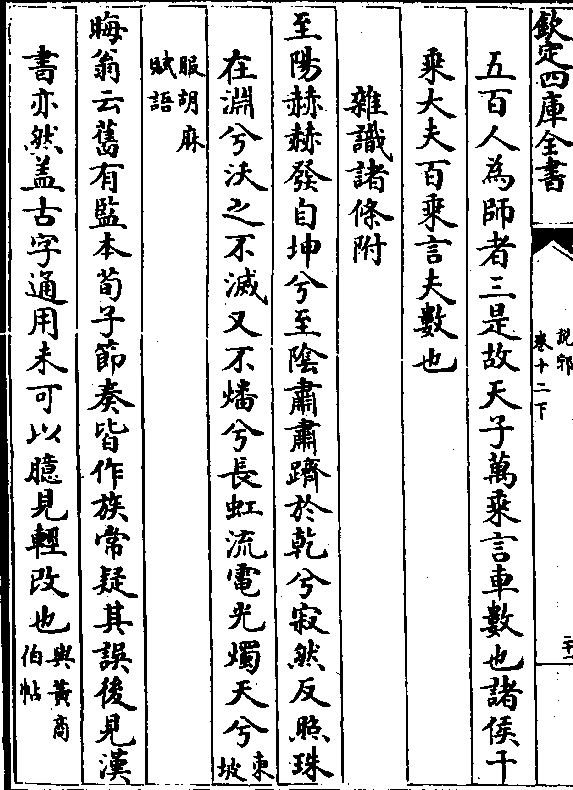 欽定四庫全書
說郛
卷十二下
五百人為師者三是故天子萬乘言車數也諸侯千
乘大夫百乘言夫數也
雜識諸條附
至陽赫赫發自坤兮至陰肅肅躋於乾兮寂然反照珠
在淵兮沃之不滅又不燔兮長虹流電光燭天兮東坡
服胡麻賦語
晦翁云舊有監本荀子節奏皆作族常疑其誤後見漢
書亦然盖古字通用未可以臆見輕改也與黃商伯帖